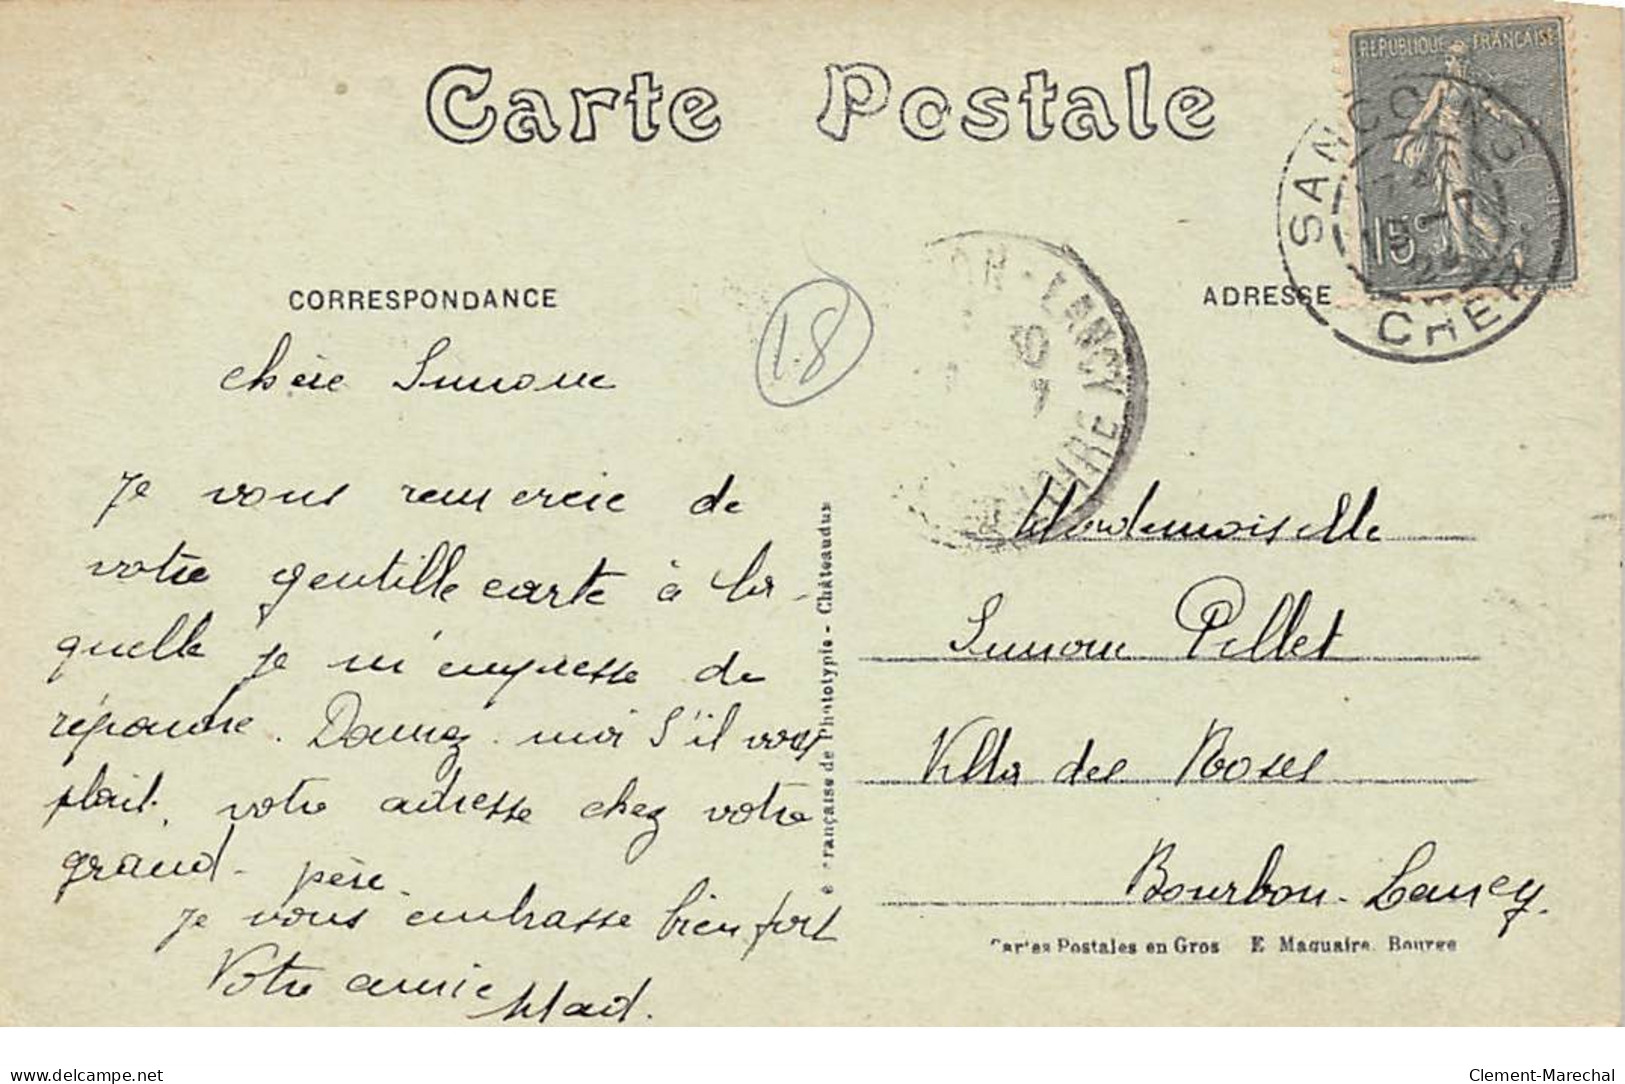 Carte Postale
REPUBLIQUE FRANÇAISE
15c
SANCOINS
CHER
CORRESPONDANCE
ADRESSE
1-8
ON-LANCY
LOIRE
Chère Simone
Je vous remercie de
votre gentille carte à la-
quelle je m'empresse de
réponse. Donnez-moi s'il vous
plait, votre adresse chez votre
grand-père.
Je vous embrasse bien fort
Votre amie
Mademoiselle
Simone Pillet
Villa des Roses
Bourbon-Lancy.
e Française de Phototypie - Châteaudun
Cartes Postales en Gros E Maquaire. Bourges
delcampe.net
Clement-Marechal